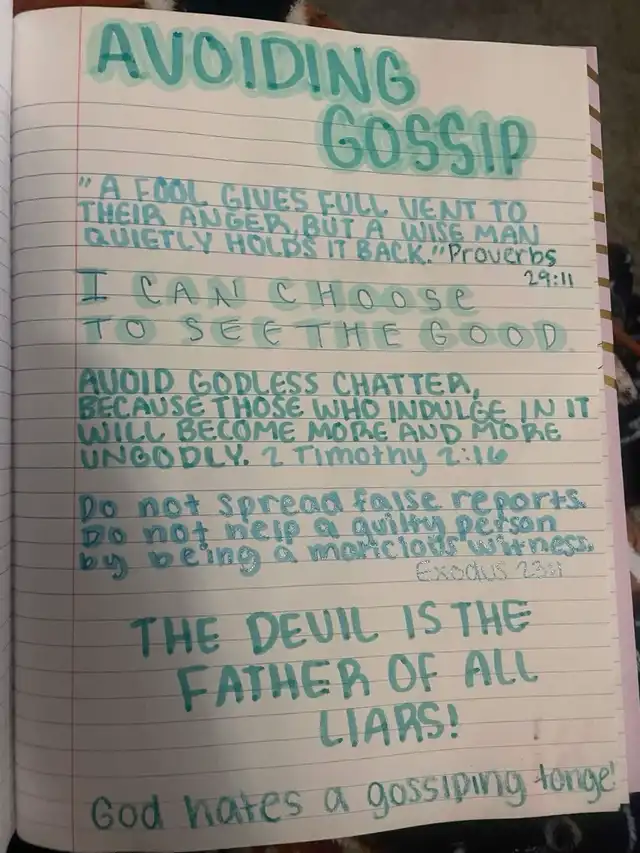 AVOIDING
GOSSIP
"A FOOL GIVES FULL VENT TO
THEIR ANGER, BUT A WISE MAN
QUIETLY HOLDS IT BACK." Proverbs
29:11
I CAN CHOOSE
TO SEE THE GOOD
AVOID GODLESS CHATTER,
BECAUSE THOSE WHO INDULGE IN IT
WILL BECOME MORE AND MORE
UNGODLY. 2 Timothy 2:16
Do not spread false reports.
Do not help a guilty person
by being a malicious witness.
Exodus 23:1
THE DEVIL IS THE
FATHER OF ALL
LIARS!
God hates a gossiping tonge!